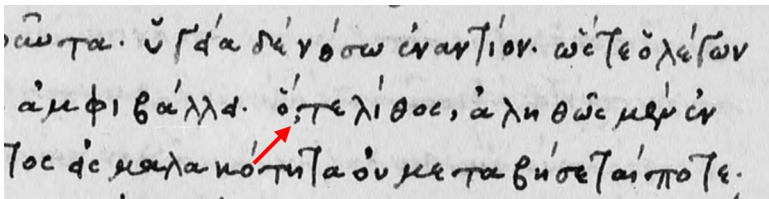 ταῦτα. ὑγεία δὲ νόσω ἐναντίον. ὥστε ὁ λέγων
ἀμφιβάλλει. ὅ,τε λίθος, ἀληθῶς μὲν ἐν
τος εἰς μαλακότητα οὐ μεταβήσεταί ποτε.